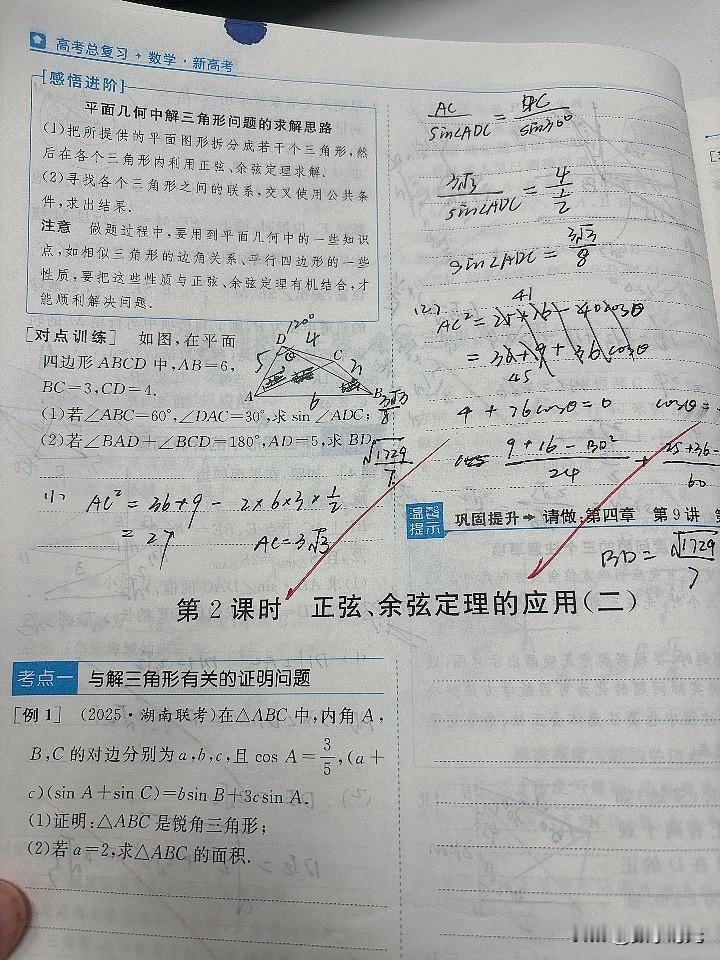 高考总复习·数学·新高考
[感悟进阶]
平面几何中解三角形问题的求解思路
(1)把所提供的平面图形拆分成若干个三角形,然
后在各个三角形内利用正弦、余弦定理求解.
(2)寻找各个三角形之间的联系,交叉使用公共条
件,求出结果.
注意 做题过程中,要用到平面几何中的一些知识
点,如相似三角形的边角关系、平行四边形的一些
性质,要把这些性质与正弦、余弦定理有机结合,才
能顺利解决问题.
[对点训练] 如图,在平面
四边形ABCD中,AB=6,
BC=3,CD=4.
(1)若∠ABC=60°,∠DAC=30°,求sin∠ADC;
(2)若∠BAD+∠BCD=180°,AD=5,求BD.
D 120° 4
5 θ C 3
A 6 B
3√3/8
√1729/7
(1) AC² = 36+9 - 2×6×3×1/2
= 27 AC=3√3
AC/sin∠ADC = DC/sin30°
3√3/sin∠ADC = 4/(1/2)
sin∠ADC = 3√3/8
(2)
41
AC² = 25+16 - 40cosθ
= 36+9+36cosθ
45
4+76cosθ=0 cosθ=
(9+16-BD²)/24 + (25+36-/60
温馨提示 巩固提升→请做:第四章 第9讲 第
BD = √1729/7
第2课时 正弦、余弦定理的应用(二)
考点一 与解三角形有关的证明问题
[例1] (2025·湖南联考)在△ABC中,内角A,
B,C的对边分别为a,b,c,且cos A=3/5,(a+
c)(sin A+sin C)=bsin B+3csin A.
(1)证明:△ABC是锐角三角形;
(2)若a=2,求△ABC的面积.